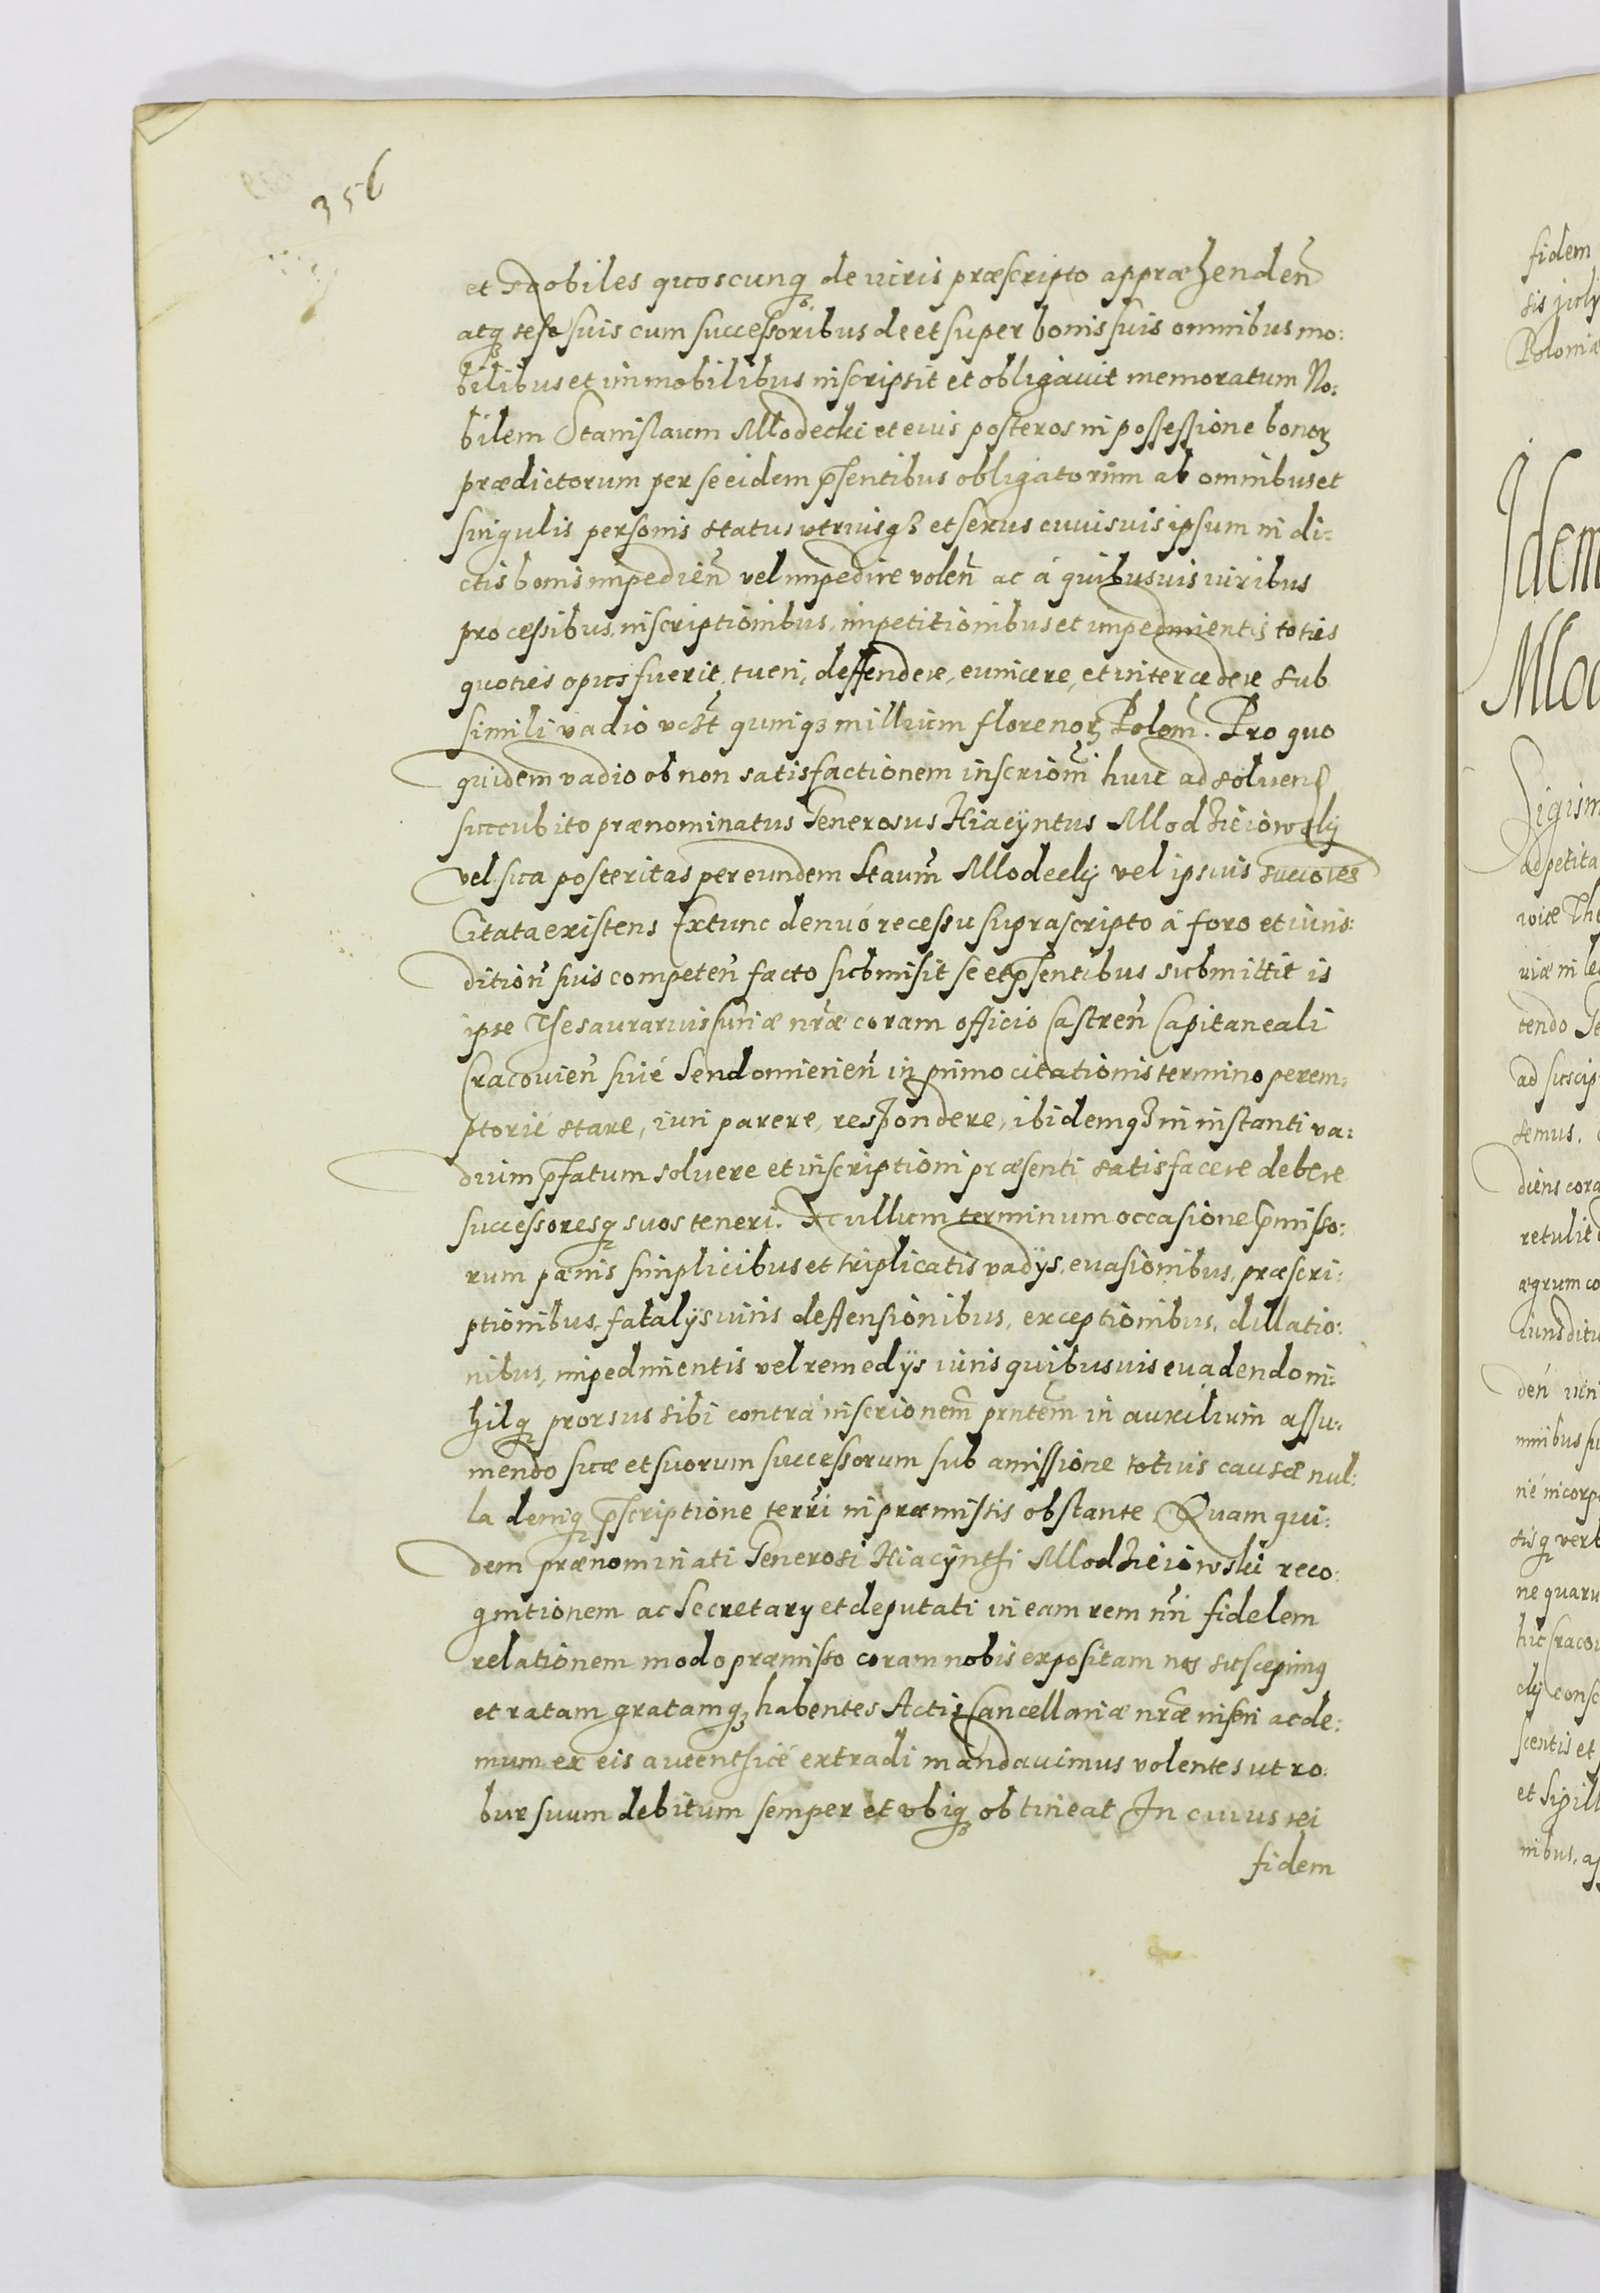 356
et Nobiles quoscunq de iuris præscripto appræhenden̄
atq sese suis cum successoribus de et super bonis suis omnibus mo:
bilibus et immobilibus inscripsit et obligauit memoratum No:
bilem Stanislaum Młodecki et eius posteros in possessione bonoꝝ
prædictorum per se eidem pn̄sentibus obligatorum ab omnibus et
singulis personis status vtriusqꝫ et sexus cuiusuis ipsum in di:
ctis bonis impedien̄ vel impedire volen̄ ac á quibusuis iuribus
processibus, inscriptionibus, impetitionibus et impedimentis toties
quoties opus fuerit, tueri, deffendere, euincere, et intercedere sub
simili vadio vczt quinqꝫ millium florenoꝝ Polon̄. Pro quo
quidem vadio ob non satisfactionem inscrion̄i huic ad soluend
succubito prænominatus Generosus Hiacÿntus Młodzieiowskÿ
vel sua posteritas per eundem Staum̄ Młodeckÿ vel ipsius succores
Citata existens Extunc denuó recessu suprascripto á foro et iuris:
dition̄ suis competen̄ facto submisit se et pn̄sentibus submittit is
ipse Thesaurarius Curiæ nr̄æ coram officio Castren̄ Capitaneali
Cracouien̄ siué Sendomirien̄ in primo citationis termino perem:
ptorié stare, iuri parere, respondere, ibidemqꝫ in instanti va:
dium p̄fatum soluere et inscriptioni præsenti satisfacere debere
successoresq suos teneri. Nullum terminum occasione p̄misso:
rum pænis simplicibus et triplicatis vadÿs, euasionibus, præscri:
ptionibus, fatalÿs iuris deffensionibus, exceptionibus, dillatio:
nibus, impedimentis vel remedÿs iuris quibusuis euadendo ni:
hilq prorsus sibi contra inscrionem̄ pn̄tem in auxilium assu:
mendo suæ et suorum successorum sub amissione totius causæ nul:
la deniq p̄scriptione terrī in præmissis obstante Quam qui:
dem prænominati Generosi Hiacÿnthi Młodzieiowski reco:
gnitionem ac Secretarÿ et deputati in eam rem nr̄i fidelem
relationem modo præmisso coram nobis expositam nos suscepimq
et ratam gratamqꝫ habentes Actis Cancellariæ nr̄æ inseri ac de:
mum ex eis autenthicé extradi mandauimus volentes ut ro:
bur suum debitum semper et vbiq obtineat In cuius rei
fidem
fidem
Poloniæ
Idem
Mło
ad petita
tendo Ge
semus.
diens cora
retulit
ægrum co
iurisditi
den̄ iuri
nibus, a